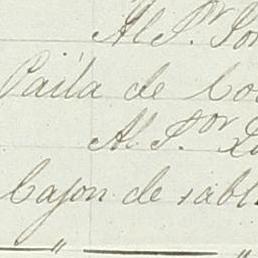 Al S.or
Paila de Co
Al S.or
Cajon de tabl
" "